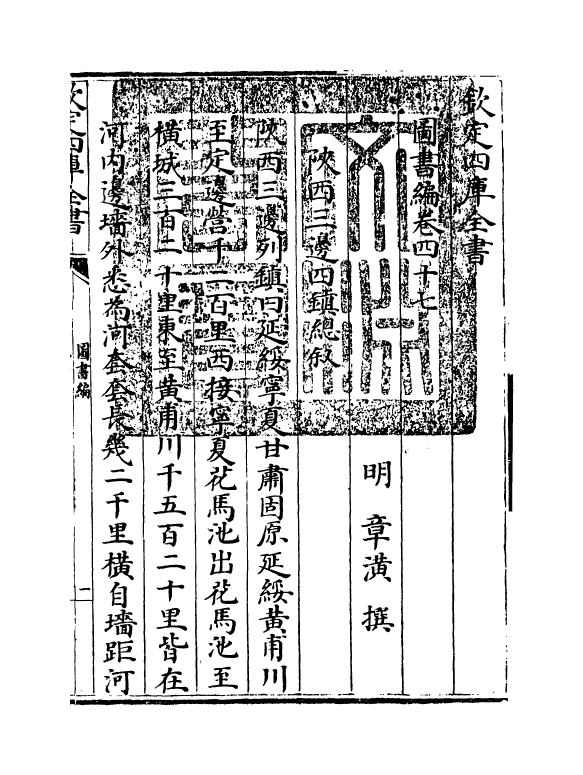 欽定四庫全書
圖書編卷四十七
明 章潢 撰
陜西三邊四鎮總敘
陜西三邊列鎮曰延綏寧夏甘肅固原延綏黄甫川
至定邊營千二百里西接寧夏花馬池出花馬池至
横城三百二十里東至黄甫川千五百二十里皆在
河内邊墻外悉為河套套長幾二千里横自墻距河
欽定四庫全書
圖書編
一